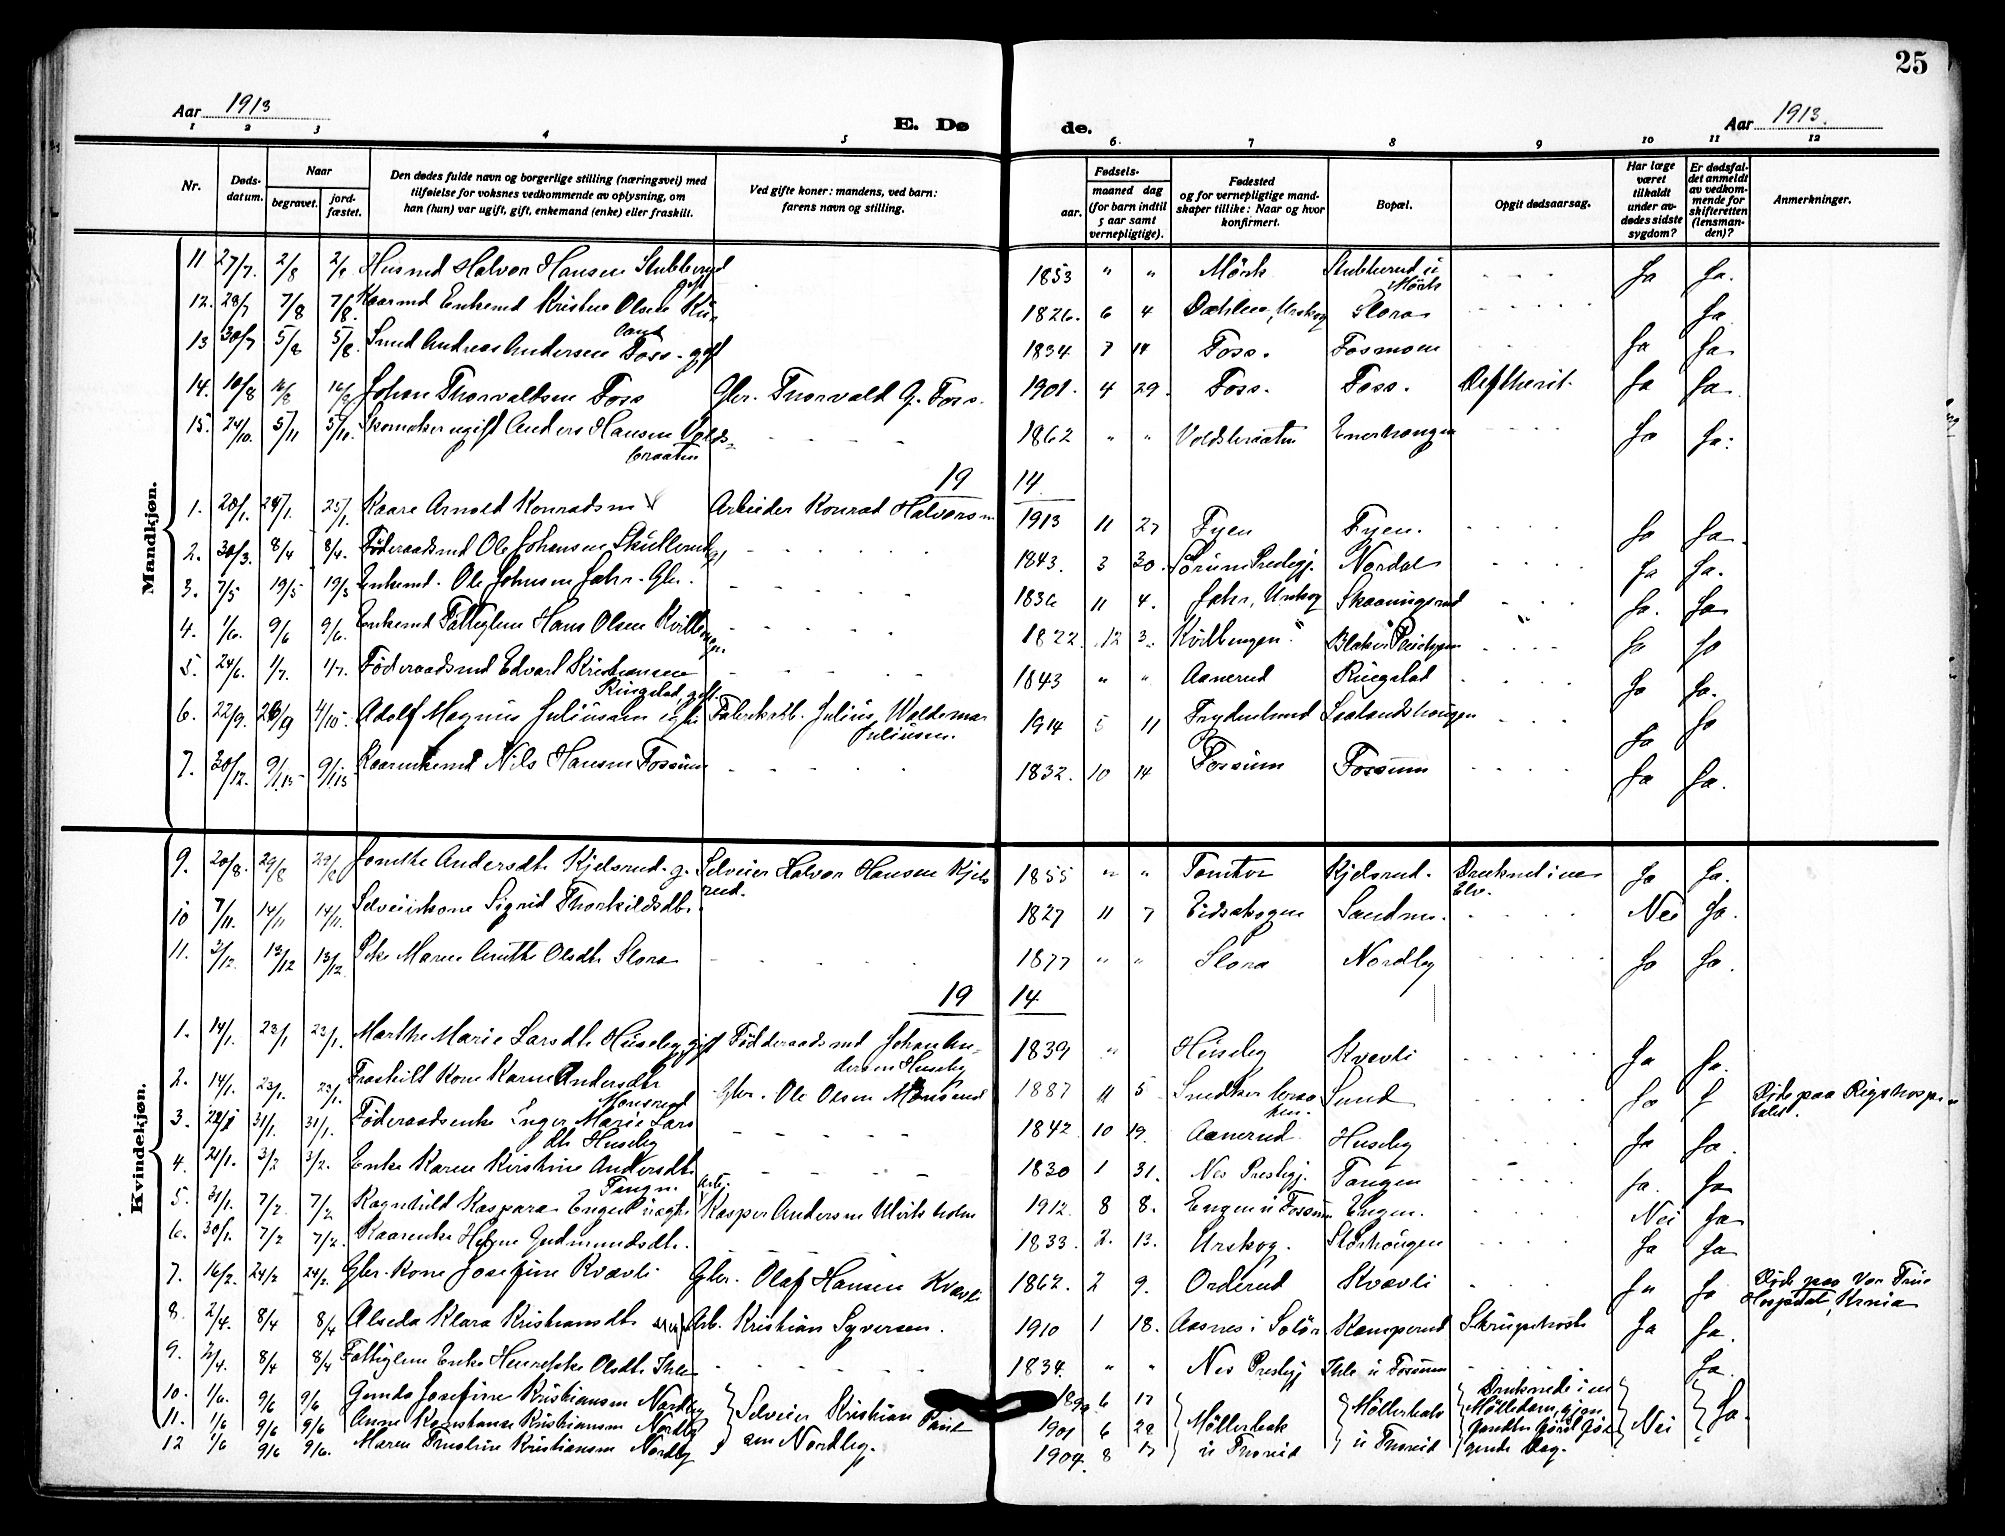 25
Aar 1913
E. Dø
de.
Aar 1913.
1 2 3 4 5 6. 7 8 9 10 11 12
Nr.
Døds-datum.
Naar
begravet.
jord-fæstet.
Den dødes fulde navn og borgerlige stilling (næringsvei) med
tilføielse for voksnes vedkommende av oplysning, om
han (hun) var ugift, gift, enkemand (enke) eller fraskilt.
Ved gifte koner: mandens, ved barn:
farens navn og stilling.
Fødsels-
aar.
maaned dag
(for barn indtil
5 aar samt
vernepligtige).
Fødested
og for vernepligtige mand-
skaper tillike: Naar og hvor
konfirmert.
Bopæl.
Opgit dødsaarsag.
Har læge
været
tilkaldt
under av-
dødes sidste
sygdom?
Er dødsfal-
det anmeldt
av vedkom-
mende for
skifteretten
(lensman-
den)?
Anmerkninger.
Mandkjøn.
11 27/7. 2/8 2/8 Husmd Halvor Hansen Stubberud gift 1853 " " Mørk Stubberud u Mørk Ja Ja.
12. 28/7 7/8 7/8. Kaarmd Enkemd Kristen Olsen 1826. 6 4 Dæhlen, Urskog Slora Ja
13 30/7 5/8 5/8. Smed Andreas Andersen Foss - gift 1834 7 14 Foss. Fosmoen Ja Ja
14. 10/8 16/8 16/8 Johan Thorvaldsen Foss Gbr. Thorvald G. Foss. 1901. 4 29. Foss. Foss. Diftherit. Ja Ja
15. 24/10. 5/11 5/11. Skomaker ugift Anders Hansen Volds-
braaten 1862 " " Voldsbraaten Enerhaugen Ja Ja.
19 14
1. 20/1. 24/1. 25/1. Kaare Arnold Konradsen Arbeider Konrad Halvorsen 1913 11 27 Fyen Fyen. Ja Ja
2. 30/3. 8/4 8/4. Føderaadsmd Ole Johansen Skullerud 1843. 3 30. Sørum Prestegj. Nordal Ja Ja.
3. 7/5 19/5 19/5 Enkemd. Ole Johnsen Jahr - Gbr. 1836 11 4. Jahr, Urskog Skaaningsrud Ja. Ja
4. 1/6. 9/6 9/6. Enkemd Fattiglem Hans Olsen 1822. 12 3. Kvilbengen Ja Ja
5. 24/6. 1/7. 1/7. Føderaadsmd Edvart Kristiansen
Ringstad gift. 1843 " " Aanerud Ringstad Ja Ja.
6. 22/9. 26/9 4/10. Adolf Magnus Juliussen Fabrikarb. Julius Waldemar
Juliussen. 1914 5 11 Frydenlund Ja Ja
7. 30/12. 9/1.15 9/1.15 Nils Hansen Fossum 1832. 10 14 Fossum Fossum Ja Ja.
Kvindekjøn.
9. 20/8. 29/8 29/8 Andersdt. Kjelsrud. g. Selveier Halvor Hansen Kjels
rud. 1855 " " Tomter Kjelsrud. Druknet i en
Elv. Ja Ja.
10 7/11. 14/11 14/11. Selveierkone Sigrid Thorkildsdt. 1827 11 7 Eidskogen Sandnes. Nei Ja.
11. 3/12. 13/12 13/12. Pike Maren Anette Olsdt. Slora 1877 " " Slora Nordby Ja Ja.
19 14
1. 14/1. 23/1 23/1. Marthe Marie Larsdt. Huseby, gift Fødderaadsmd Johan An-
dersen Huseby 1839 " Huseby Kvevli Ja Ja.
2. 14/1. 23/1. 23/1. Fraskilt Kone Karen Andersdtr
Monsrud Gbr. Ole Olsen Monsrud 1887 11 5 Sund Ja J Døde paa Rigshospi-
talet.
3. 31/1. 31/1. Føderaadsenke Inger Marie Lars
dt. Huseby 1842 10 19. Aanerud Huseby Ja Ja.
4. 21/1. 3/2 3/2. Enke Karen Kirstine Andersdt.
Tangen 1830 1 31. Nes Prestgj. Tangen Ja. Ja
5. 31/1. 7/2. 7/2 Ragnhild Kaspara Engen Arb. Kasper Andersen Ulviksholm 1912. 8 8. Engen u Fossum Engen. Nei Ja
6. 30/1. 7/2 7/2. Kaarenke Helene Gudmundsdt. 1833. 2. 13. Urskog. Storhaugen Ja Ja
7. 16/2. 24/2 24/2. Gbr. Kone Josefine Kvævli Gbr. Olaf Hansen Kvævli 1862. 2 9. Orderud Kvævli Ja Ja Døde paa Vor Frue
Hospital, Krnia
8. 2/4. 8/4 8/4 Alseda Klara Kristiansdt. Arb. Kristian Syversen. 1910 1 18. Aasnes i Solør Kamperud Strupehoste Ja Ja.
9. 2/4. 8/4 8/4 Fattiglem Enke Henrikke Olsdt. Ihle 1834. " " Nes Prestgj Ihle u Fossum Ja.
10. 1/6. 9/6 9/6. Gunda Josefine Kristiansen Nordby 6 17
11. 1/6 9/6 9/6 Anne Konstanse Kristiansen Nordby Selveier Kristian Paul
sen Nordby. 1901 6 28 Møllerbæk
u Tnorud Møllerbæk
u Tnorud Druknede i en
Mølledam, gjen Nei Ja.
12 1/6 9/6 9/6. Maren Kristiansen Nordby 1904. 8 17